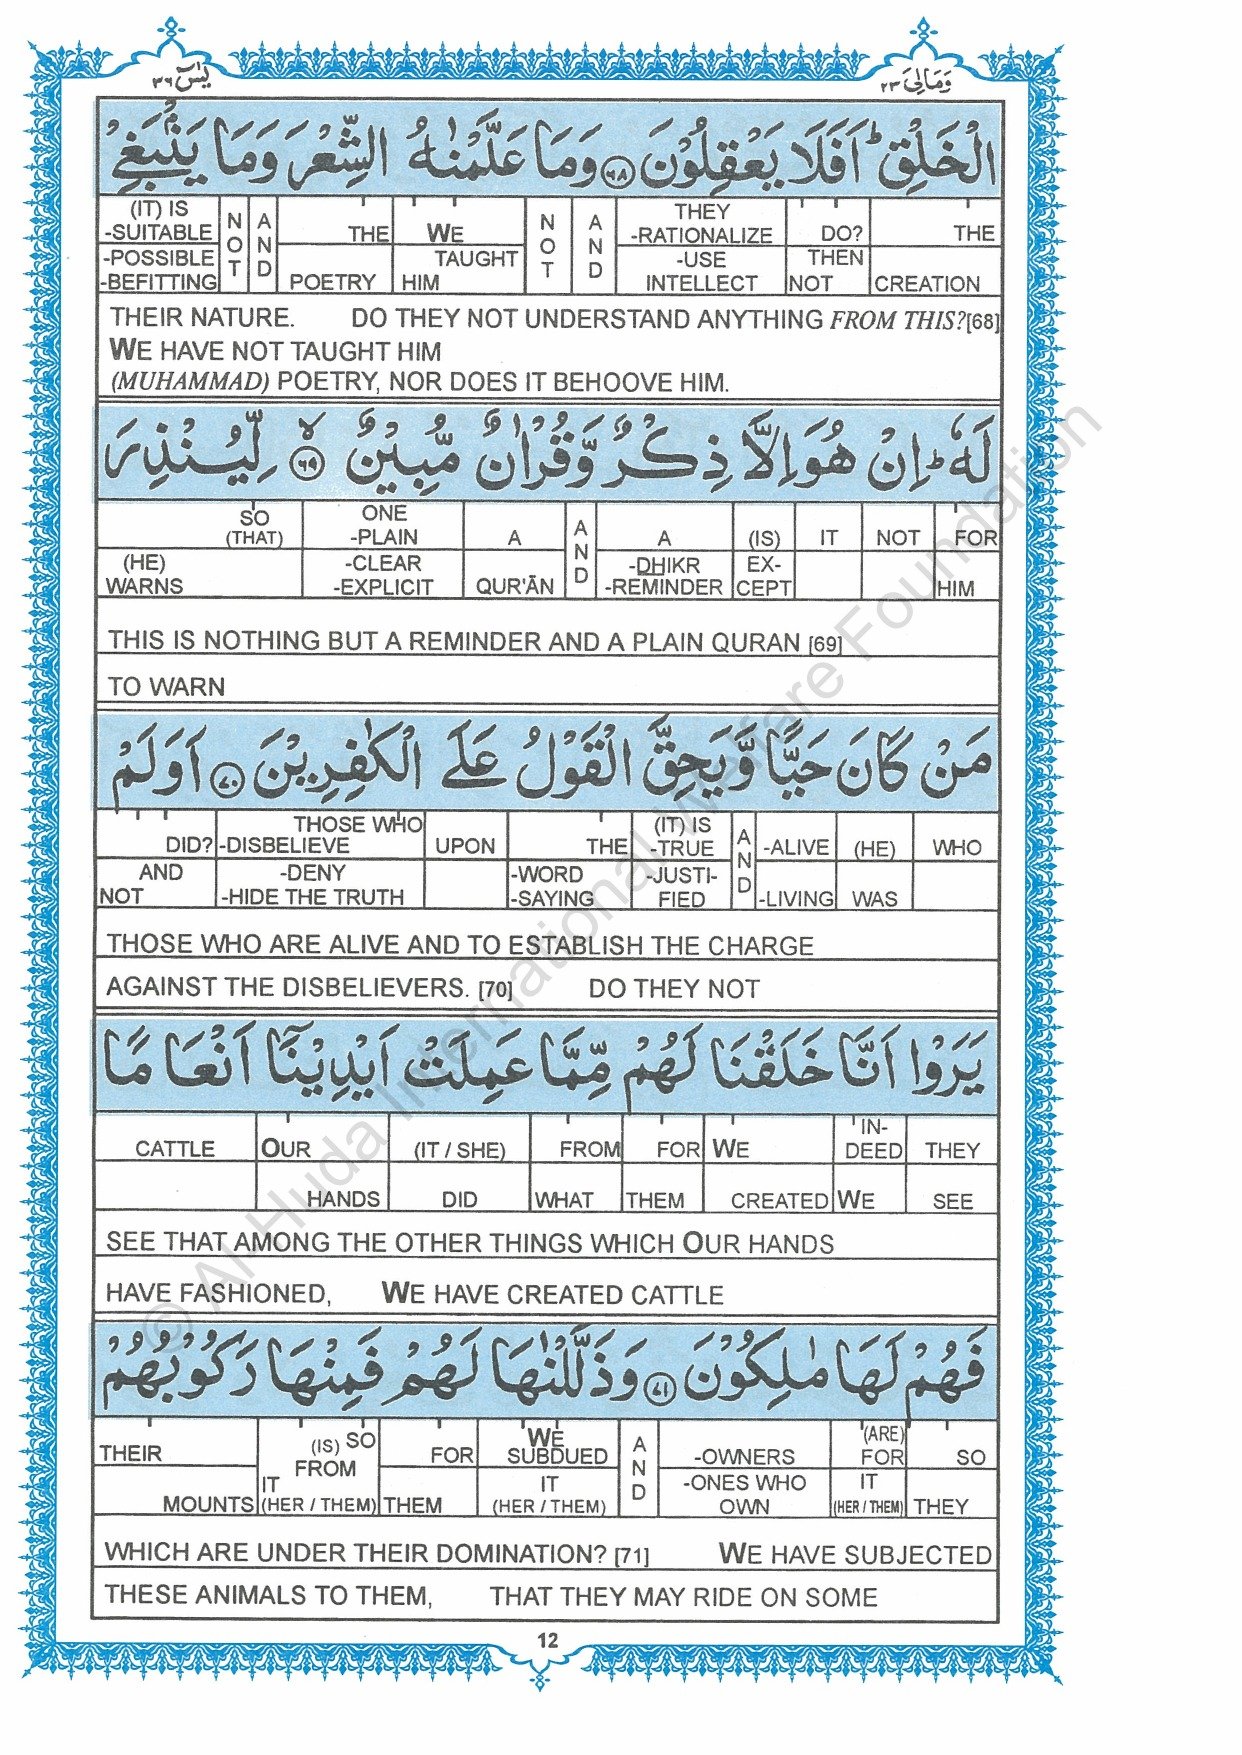 يٰسٓ ٣٦
وَمَالِىَ ٢٣
الْخَلْقِ ؕ اَفَلَا يَعْقِلُوْنَ ﴿٦٨﴾ وَمَا عَلَّمْنٰهُ الشِّعْرَ وَمَا يَنْۢبَغِىْ
(IT) IS -SUITABLE NOT AND THE WE NOT AND THEY -RATIONALIZE DO? THE
-POSSIBLE -BEFITTING POETRY TAUGHT HIM -USE INTELLECT THEN NOT CREATION
THEIR NATURE. DO THEY NOT UNDERSTAND ANYTHING FROM THIS?[68]
WE HAVE NOT TAUGHT HIM
(MUHAMMAD) POETRY, NOR DOES IT BEHOOVE HIM.
لَهٗ ؕ اِنْ هُوَ اِلَّا ذِكْرٌ وَّقُرْاٰنٌ مُّبِيْنٌ ۙ﴿٦٩﴾ لِّيُنْذِرَ
SO (THAT) ONE -PLAIN A AND A (IS) IT NOT FOR
(HE) WARNS -CLEAR -EXPLICIT QUR'ĀN -DHIKR -REMINDER EXCEPT HIM
THIS IS NOTHING BUT A REMINDER AND A PLAIN QURAN [69]
TO WARN
مَنْ كَانَ حَيًّا وَّيَحِقَّ الْقَوْلُ عَلَى الْكٰفِرِيْنَ ﴿٧٠﴾ اَوَلَمْ
DID? THOSE WHO -DISBELIEVE UPON THE (IT) IS -TRUE AND -ALIVE (HE) WHO
AND NOT -DENY -HIDE THE TRUTH -WORD -SAYING -JUSTI-FIED -LIVING WAS
THOSE WHO ARE ALIVE AND TO ESTABLISH THE CHARGE
AGAINST THE DISBELIEVERS. [70] DO THEY NOT
يَرَوْا اَنَّا خَلَقْنَا لَهُمْ مِّمَّا عَمِلَتْ اَيْدِيْنَاۤ اَنْعَامًا
CATTLE OUR (IT / SHE) FROM FOR WE IN-DEED THEY
HANDS DID WHAT THEM CREATED WE SEE
SEE THAT AMONG THE OTHER THINGS WHICH OUR HANDS
HAVE FASHIONED, WE HAVE CREATED CATTLE
فَهُمْ لَهَا مٰلِكُوْنَ ﴿٧١﴾ وَذَلَّلْنٰهَا لَهُمْ فَمِنْهَا رَكُوْبُهُمْ
THEIR (IS) SO FROM FOR WE SUBDUED AND -OWNERS (ARE) FOR SO
MOUNTS IT (HER / THEM) THEM IT (HER / THEM) -ONES WHO OWN IT (HER / THEM) THEY
WHICH ARE UNDER THEIR DOMINATION? [71] WE HAVE SUBJECTED
THESE ANIMALS TO THEM, THAT THEY MAY RIDE ON SOME
12
© Al-Huda International Welfare Foundation